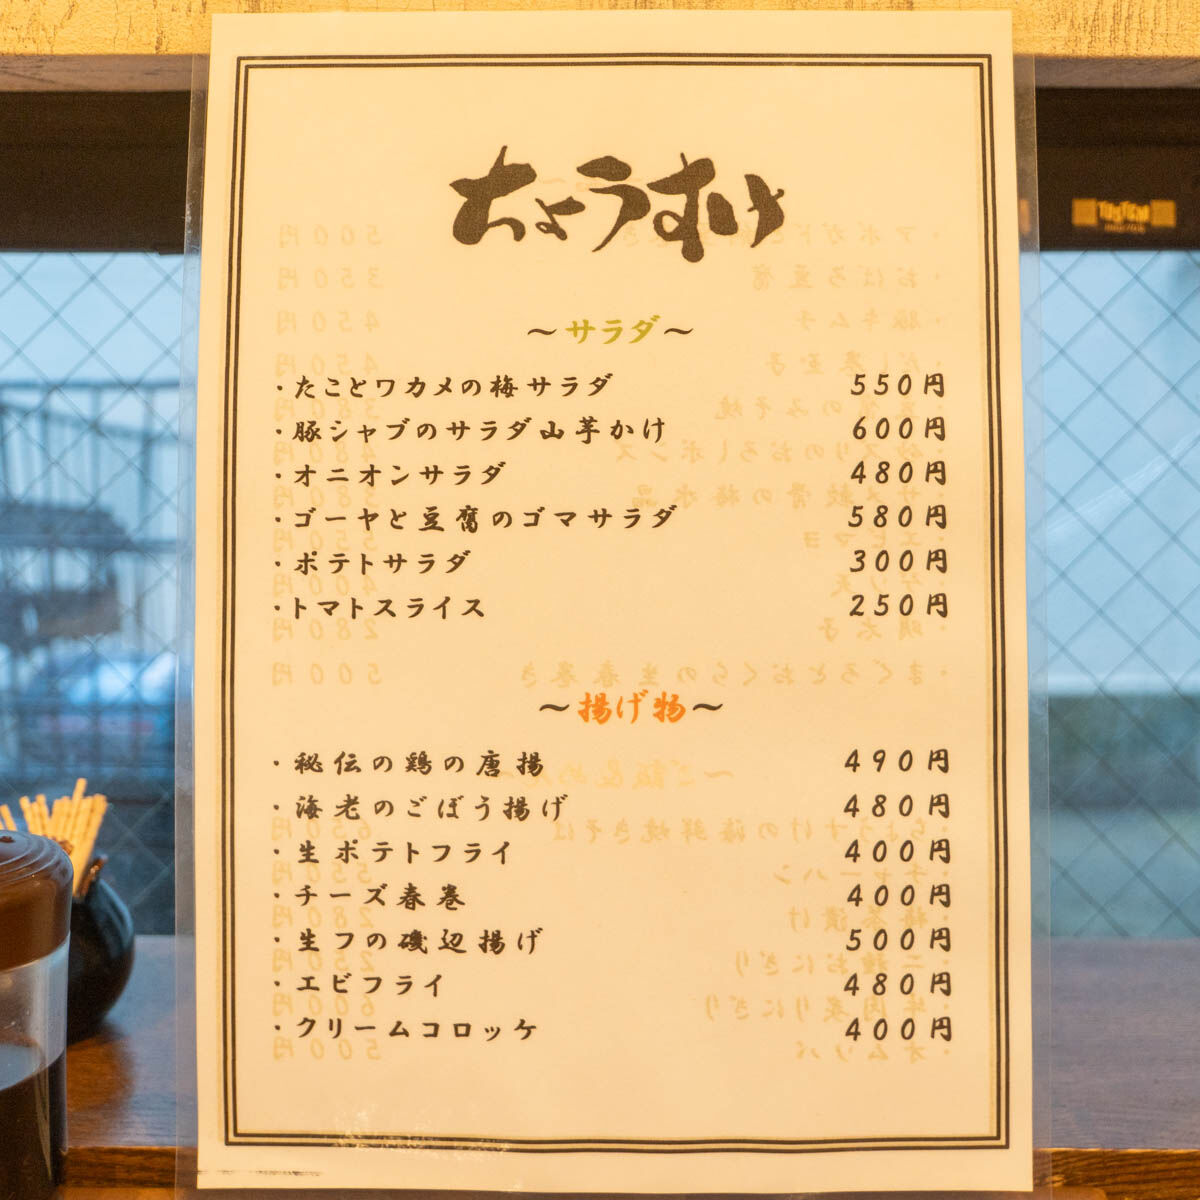 ちょうすけ
～サラダ～
・たことワカメの梅サラダ 550円
・豚シャブのサラダ山芋かけ 600円
・オニオンサラダ 480円
・ゴーヤと豆腐のゴマサラダ 580円
・ポテトサラダ 300円
・トマトスライス 250円
～揚げ物～
・秘伝の鶏の唐揚 490円
・海老のごぼう揚げ 480円
・生ポテトフライ 400円
・チーズ春巻 400円
・生フの磯辺揚げ 500円
・エビフライ 480円
・クリームコロッケ 400円